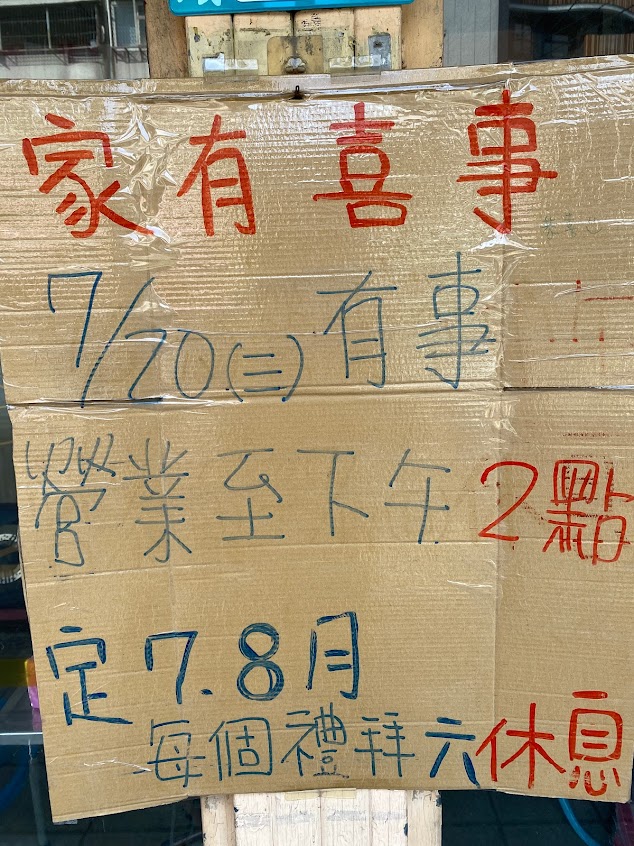 家有喜事
7/20(三)有事
營業至下午2點
定7.8月
每個禮拜六休息